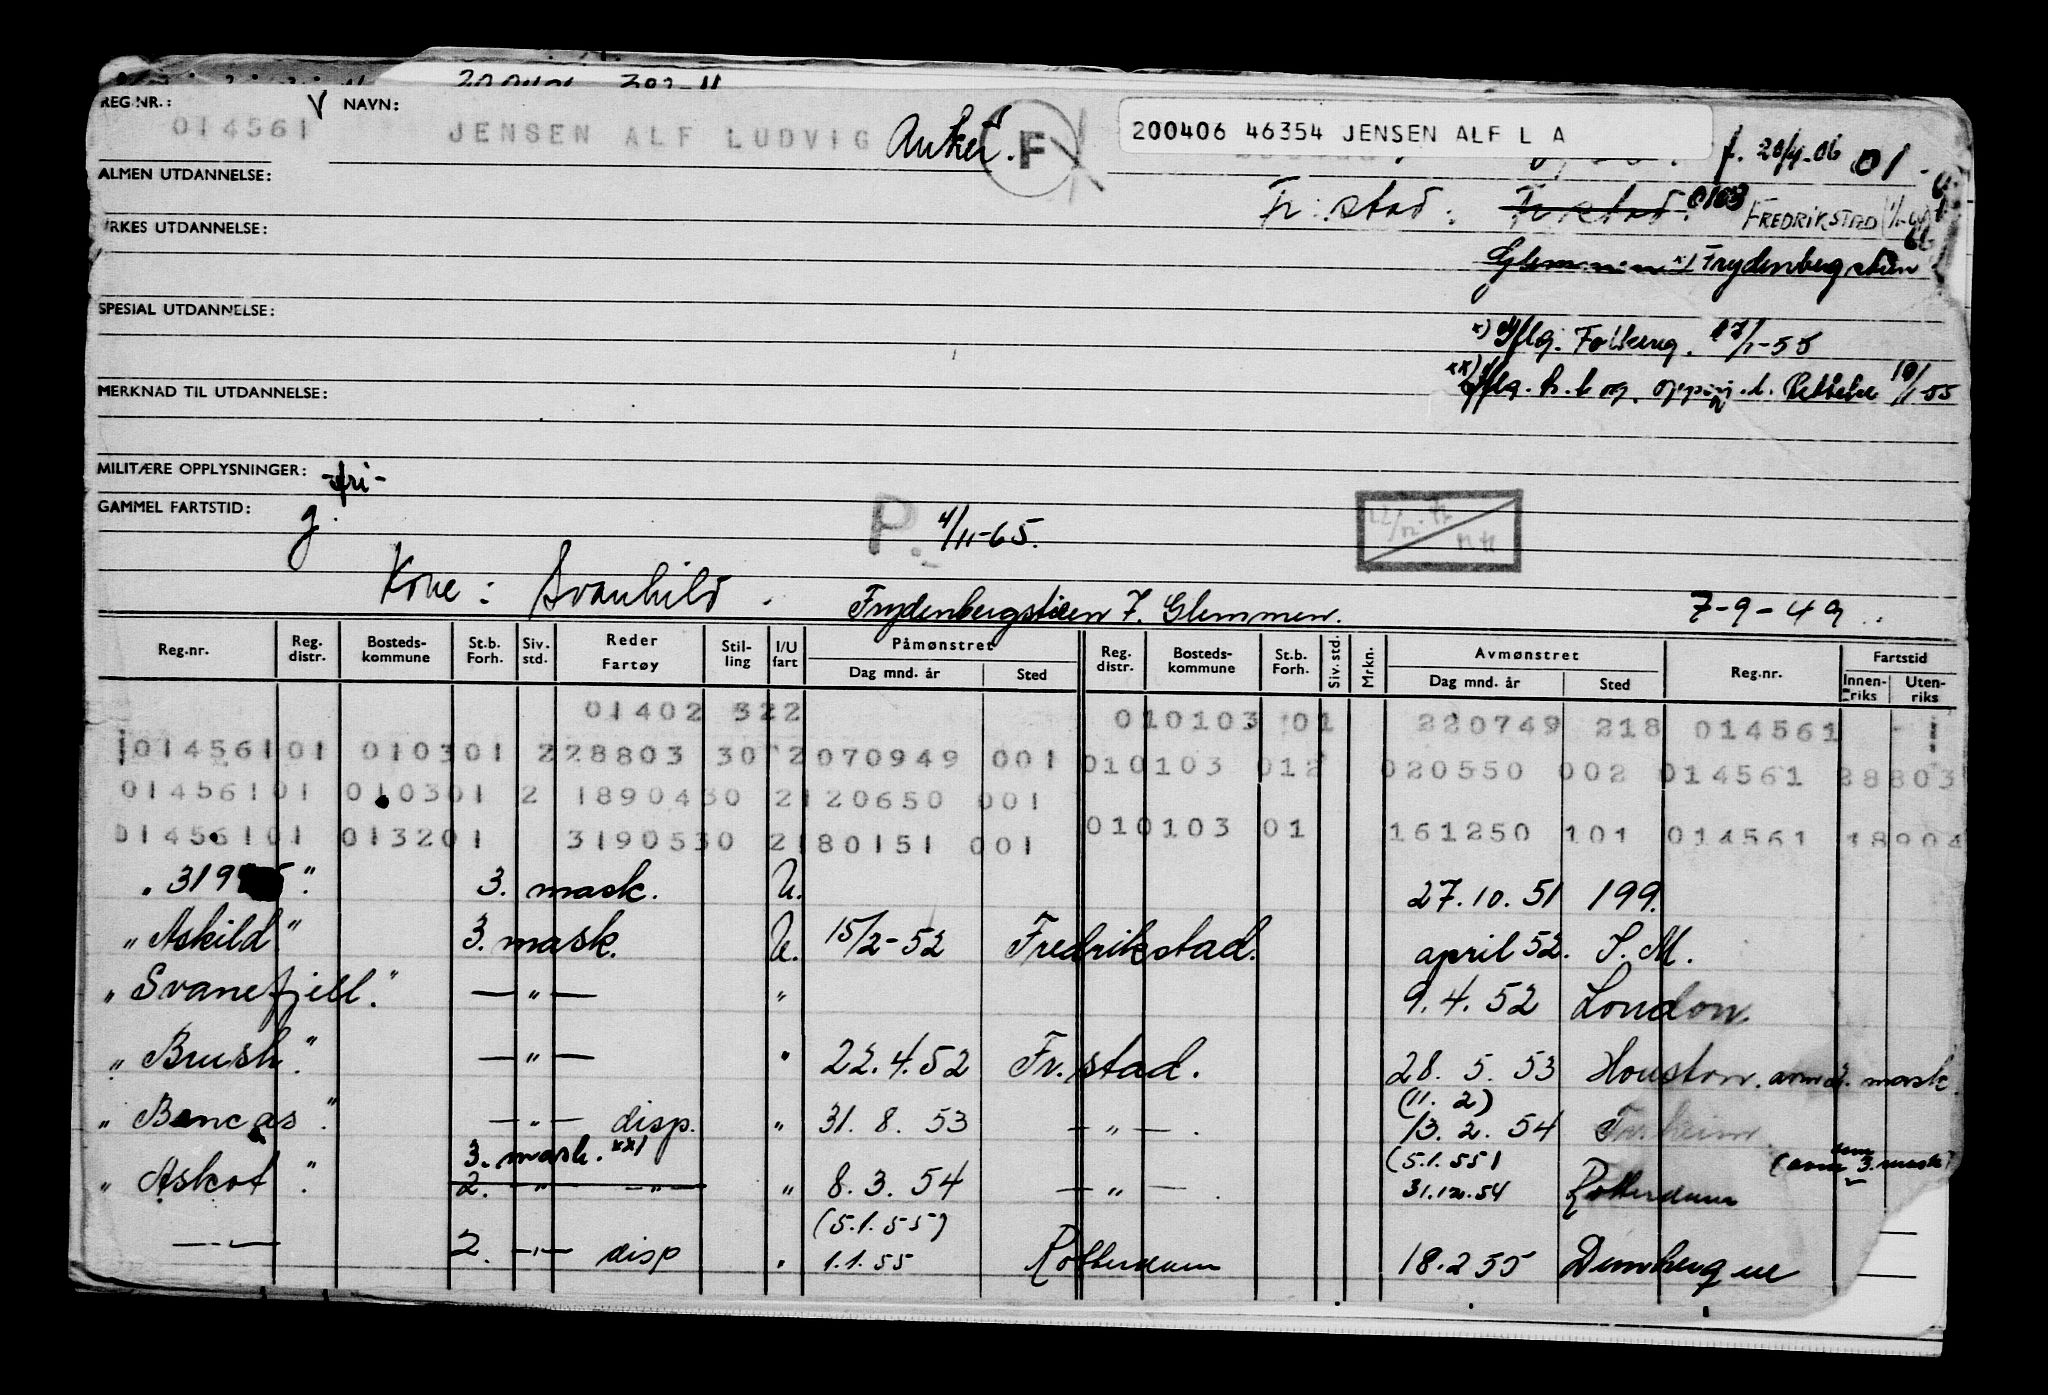 REG.NR.: 014561 V NAVN: JENSEN ALF LUDVIG Anker. F 200406 46354 JENSEN ALF L A
f. 20/4-06 01
ALMEN UTDANNELSE:
Fr: stad. Fr stad. 0103 FREDRIKSTAD
YRKES UTDANNELSE:
Glemmen x) Frydenbergstien
SPESIAL UTDANNELSE:
x) iflg. Folkereg. 17/1-55
MERKNAD TIL UTDANNELSE:
xx) iflg. h.b og. oppg. d. Rettelse 10/1-55
MILITÆRE OPPLYSNINGER: -fri-
GAMMEL FARTSTID: g. P. 4/11-65.
Kone: Svanhild. Frydenbergstien 7. Glemmen. 7-9-49
Reg.nr. Reg. distr. Bosteds-kommune St.b. Forh. Siv. std. Reder Fartøy Stil-ling I/U fart Påmønstret Dag mnd. år Sted Reg. distr. Bosteds-kommune St.b. Forh. Siv. std. Mrkn. Avmønstret Dag mnd. år Sted Reg.nr. Fartstid Innen-riks Uten-riks
01402 322 010103 01 220749 218 014561 - 1
01456101 010301 228803 30 2 070949 001 010103 012 020550 002 014561 28803
01456101 010301 2 1890430 2120650 001
01456101 013201 3190530 2180151 001 010103 01 161250 101 014561 18904
" 319 5" 3. mask. U. 27.10.51 199.
"Askild" 3. mask. U. 15/2-52 Fredrikstad. april 52. S.M.
"Svanefjell." — " — " 9.4.52 London.
"Brush." — " — " 22.4.52 Fr.stad. 28.5.53 Houston. avm 3. mask.
(11.2)
"Bencas". — " — disp. " 31.8.53 — " — . 13.2.54
3. mask. xx) (5.1.55) (avm som 3. mask)
"Askot" 2. — " — " — " 8.3.54 — " — . 31.12.54 Rotterdam
(5.1.55)
— " — 2. — " — disp " 1.1.55 Rotterdam 18.2 55 Dunkerque